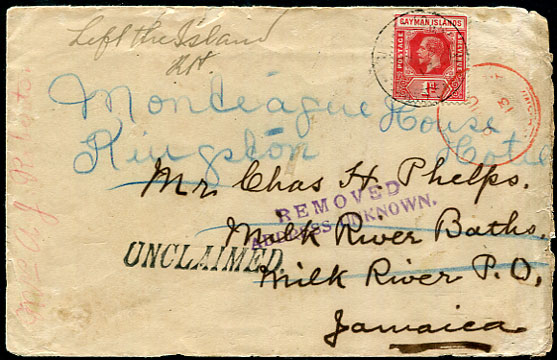 Left the Island
CAYMAN ISLANDS
POSTAGE
& REVENUE
1d
Monteague House
Kingston Hotel
Mr. Chas H. Phelps.
REMOVED
ADDRESS UNKNOWN.
Milk River Baths.
UNCLAIMED
Milk River P.O.
Jamaica